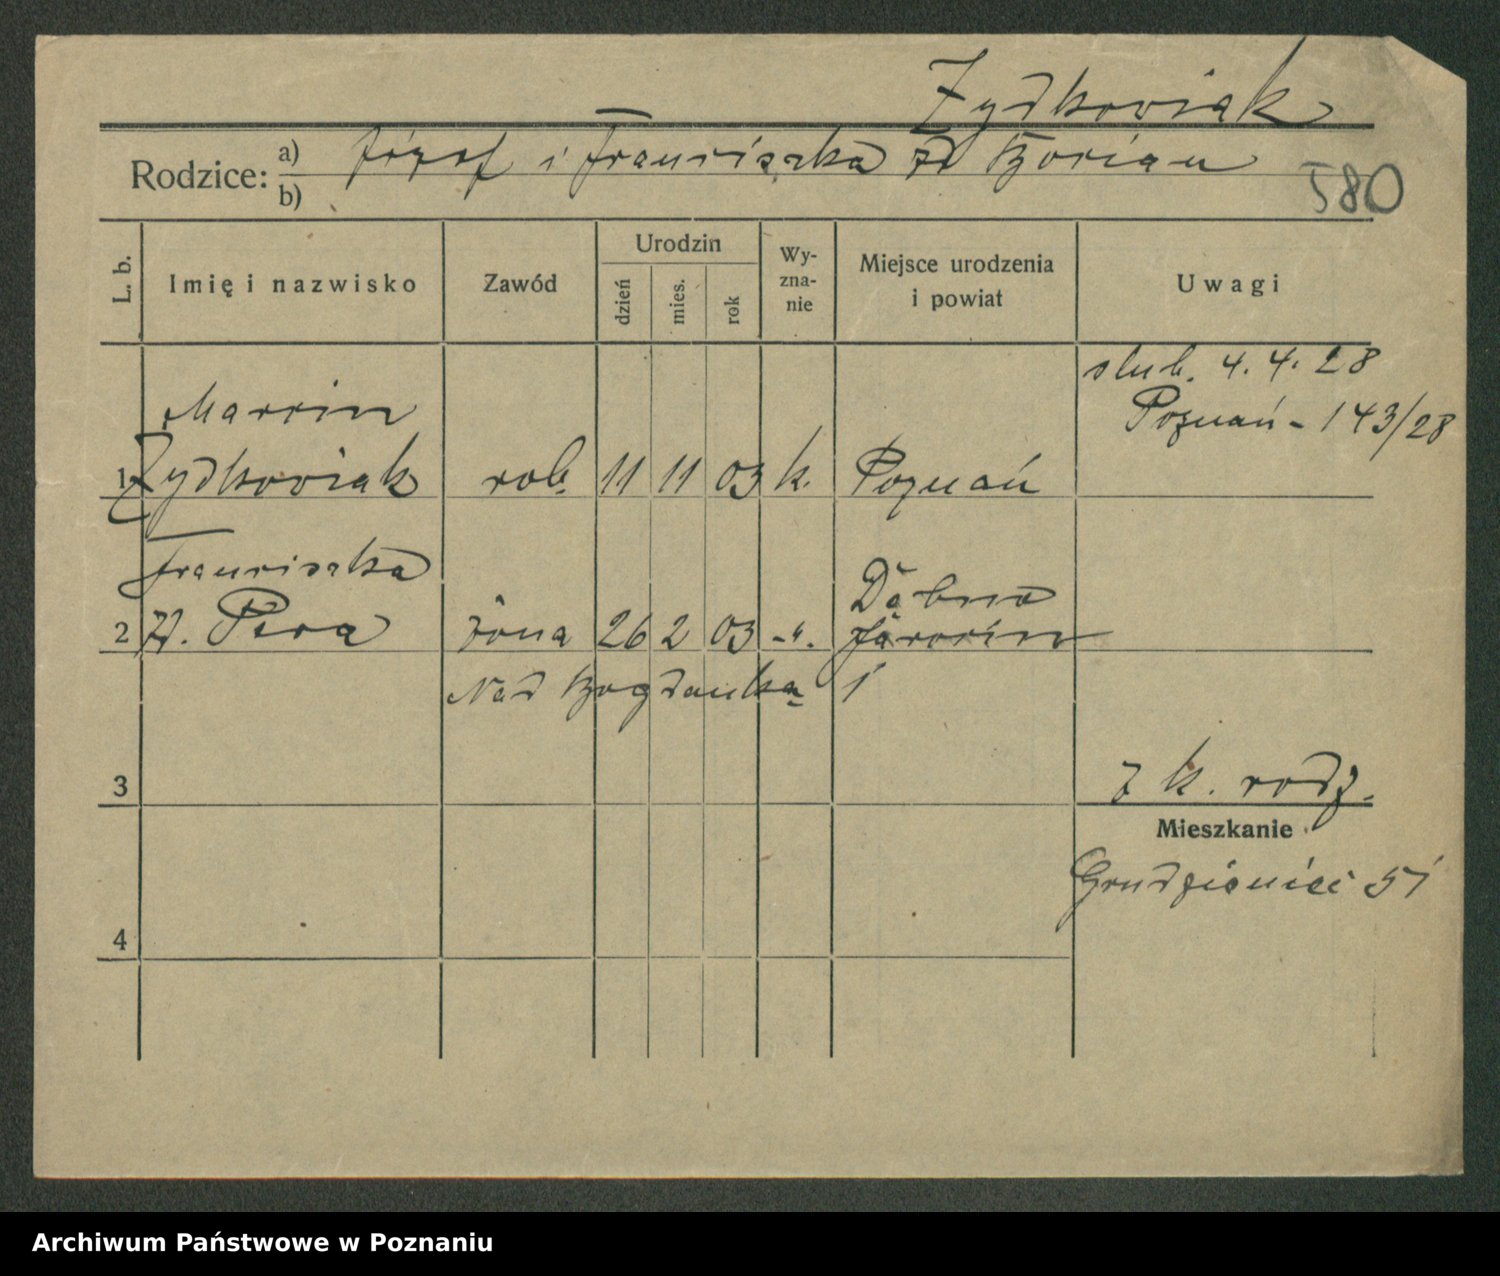 Zydkowiak
Rodzice: a) Józef i Franciszka zd Bocian
b)
580
L. b.
Imię i nazwisko
Zawód
Urodzin
dzień
mies.
rok
Wy-
zna-
nie
Miejsce urodzenia
i powiat
Uwagi
ślub. 4. 4. 28
Poznań - 143/28
Marcin
1 Zydkowiak rob. 11 11 03 k. Poznań
Franciszka
2 zd. Pera żona 26 2 03 -"- Dąbno
Jarocin
Nad Bogdanką 1
3
z k. rodz.
Mieszkanie
Grudzieniec 51
4
Archiwum Państwowe w Poznaniu